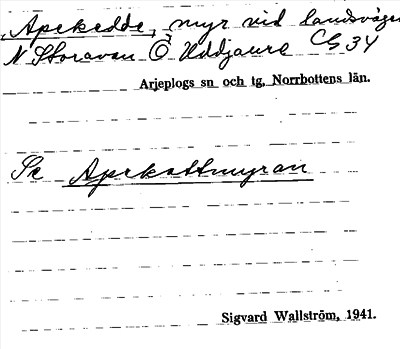 Apekedde, myr vid landsvägen
N Storavan Ö Uddjaure CG 34
Arjeplogs sn och tg, Norrbottens län.
Se Apekattmyran
Sigvard Wallström, 1941.